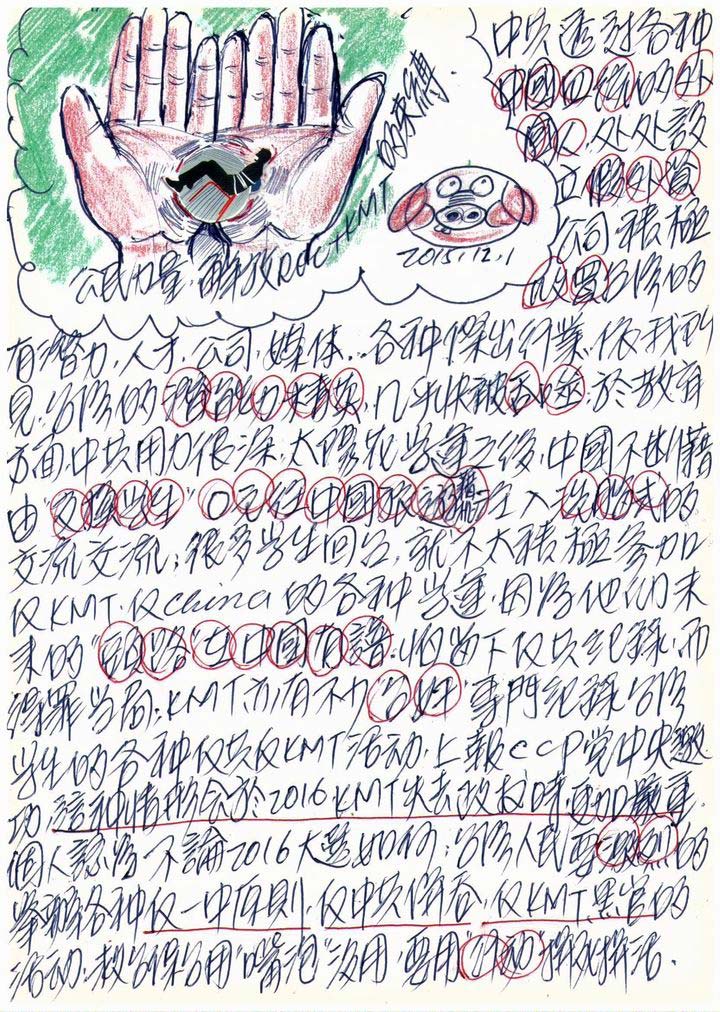 中共透过各种
中國□□的外
國人,处处設
立假外資
公司,積極
□□台湾的
公民力量,解放ROC+KMT
的束縛.
2015.12.1
有潛力,人才,公司,媒体,各种傑出行業,依我所
見:台湾的 力 ,几乎快被吞 ;於教育
方面,中共用力很深,太陽花学運之後,中國不断藉
由"交換学生" 0元往中國 入 式的
交流交流;很多学生回台,就不太積極参加
反KMT,反china的各种学運,因為他们未
来的" 路"在中國有譜,怕留下反共紀錄,而
得罪当局;KMT亦有不少" "專門紀錄台湾
学生的各种反共反KMT活动,上報CCP党中央邀
功,這种情形会於2016KMT失去政权時,更加嚴重.
個人認為不論2016大選如何;台湾人民要 的
舉辦各种反一中原則,反中共併吞,反KMT黑官的
活动;救台保台用"嘴泡"沒用,要用"行动"拼死拼活.